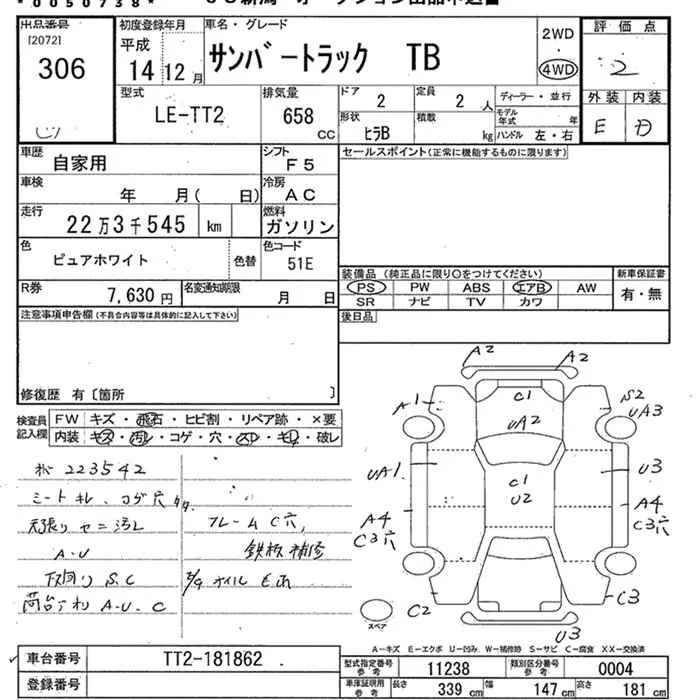 *0050738*
出品番号 初度登録年月 車名・グレード 2WD 評価点
[2072] 平成 サンバートラック TB ・
306 14 12月 4WD 2
型式 排気量 ドア 定員 ディーラー・並行 外装 内装
LE-TT2 658 CC 2 2人 モデル年式 年 E D
形状 積載 ハンドル 左・右
ヒラB kg
車歴 自家用 シフト F5 セールスポイント(正常に機能するものに限ります)
車検 年 月( 日) 冷房 AC
走行 22万3千545 km 燃料 ガソリン
色 ピュアホワイト 色替 色コード 51E
装備品(純正品に限り○をつけてください) 新車保証書
R券 7,630円 名変通知期限 月 日 PS PW ABS エアB AW 有・無
SR ナビ TV カワ
注意事項申告欄(不具合内容等は具体的に記入して下さい) 後日品
修復歴 有〔箇所 〕
検査員記入欄 FW キズ・飛石・ヒビ割・リペア跡・×要
内装 キズ・汚レ・コゲ・穴・スレ・キレ・破レ
A2 A2
A1 C1 S2
UA2 UA3
UA1 C1 U3
U2
A4 A4
C3穴 C3穴
C2 C3
U3
スペア
223542
シートキレ、コゲ穴
天張りヤニ汚レ フレームC穴
A・U 鉄板補修
下廻りS.C E/Gオイルモレ
荷台アオリA・U・C
A-キズ E-エクボ U-凹み W-補修跡 S-サビ C-腐食 XX-交換済
車台番号 TT2-181862 型式指定番号参考 11238 類別区分番号参考 0004
登録番号 車庫証明用参考 長さ 339 cm 幅 147 cm 高さ 181 cm